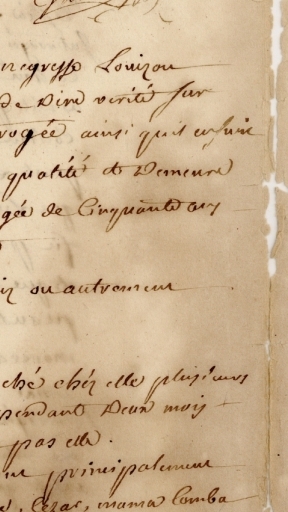 negresse Louizon
de Dire verité sur
rogée ainsi quil ensuit
qualité et Demeure
gée de Cinquante ans
ou autrement
ché chéz elle plusieurs
pendant Deux mois
pas elle.
principalement
Cezar, mama Comba